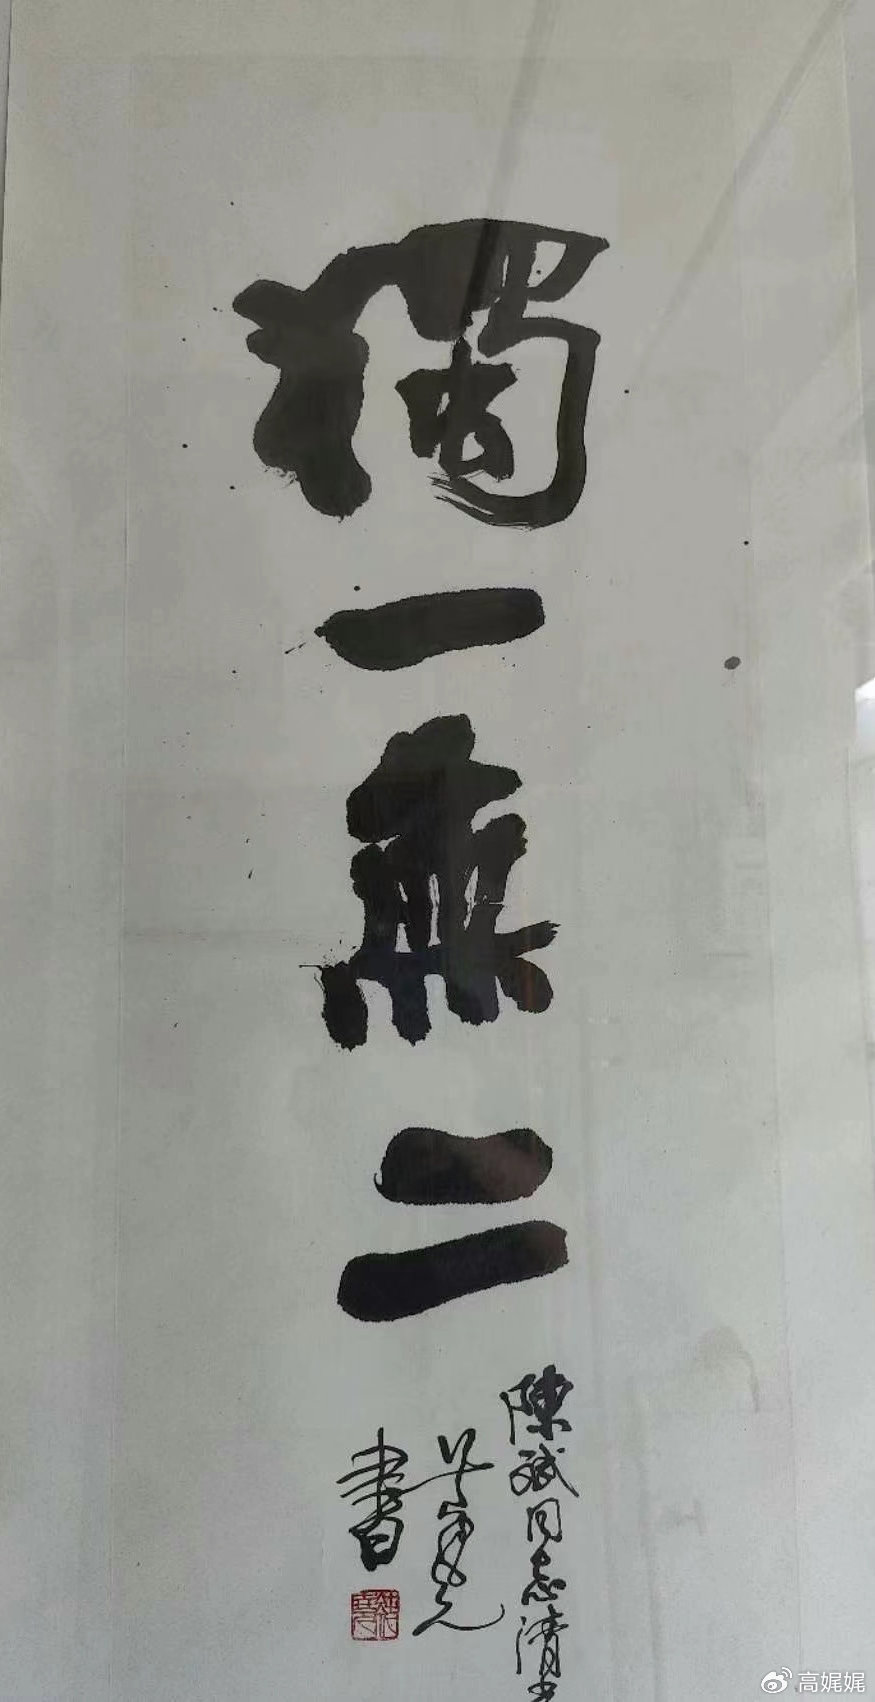 獨一無二
陳斌同志清
書
高娓娓